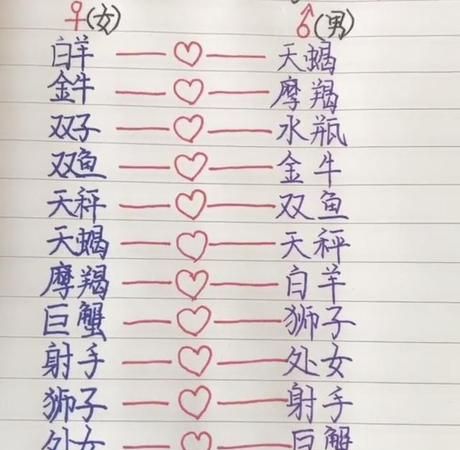 ♀(女) ♂(男)
白羊 天蝎
金牛 摩羯
双子 水瓶
双鱼 金牛
天秤 双鱼
天蝎 天秤
摩羯 白羊
巨蟹 狮子
射手 处女
狮子 射手
处女 巨蟹